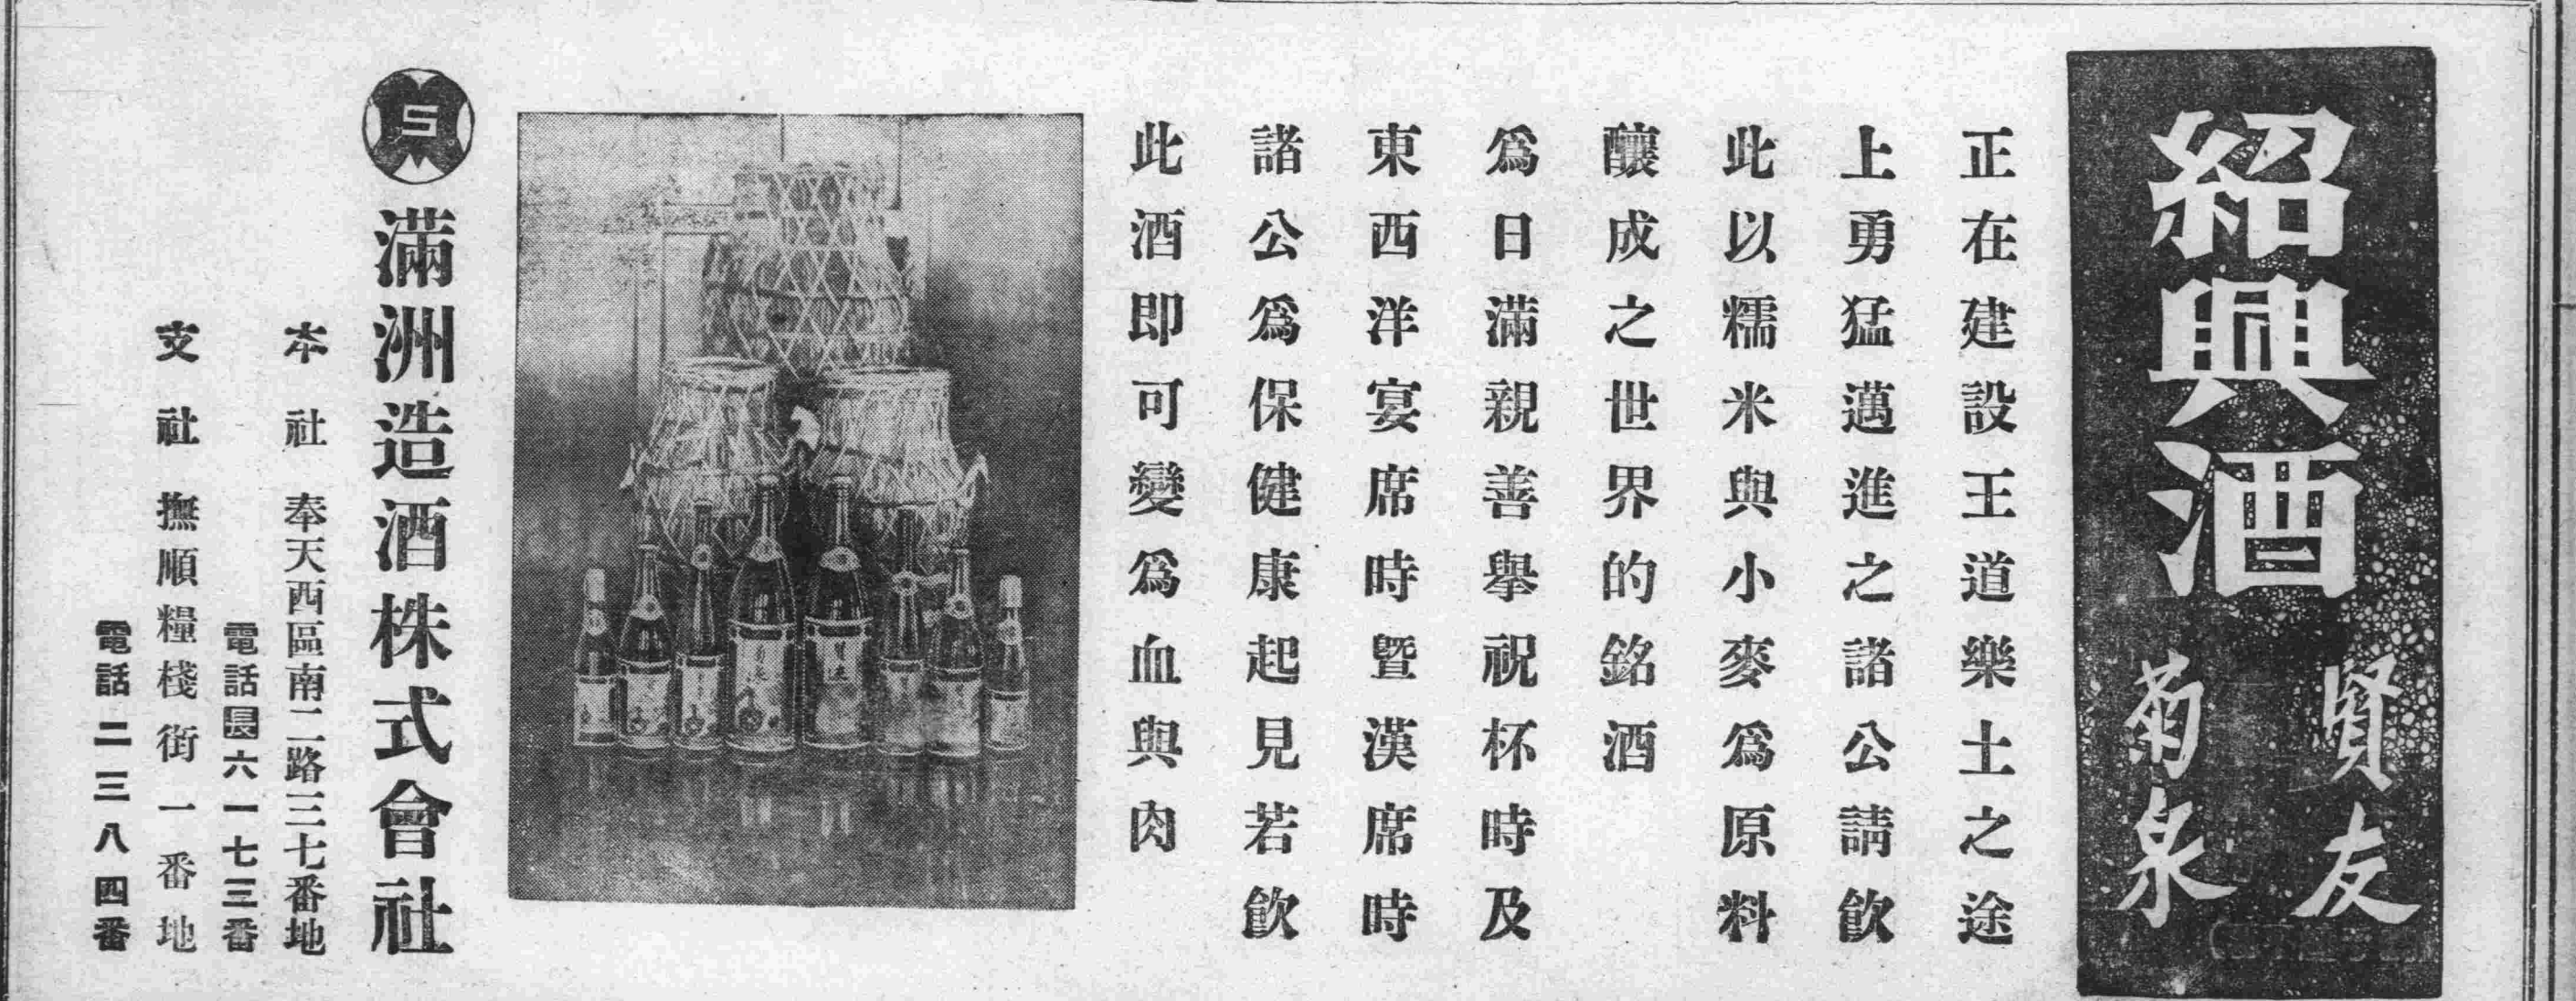 紹興酒
賢友
菊泉
正在建設王道樂土之途
上勇猛邁進之諸公請飲
此以糯米與小麥爲原料
釀成之世界的銘酒
爲日滿親善舉祝杯時及
東西洋宴席時暨漢席時
諸公爲保健康起見若飲
此酒即可變爲血與肉
滿洲造酒株式會社
本社 奉天西區南二路三七番地
電話長六一七三番
支社 撫順糧棧街一番地
電話二三八四番